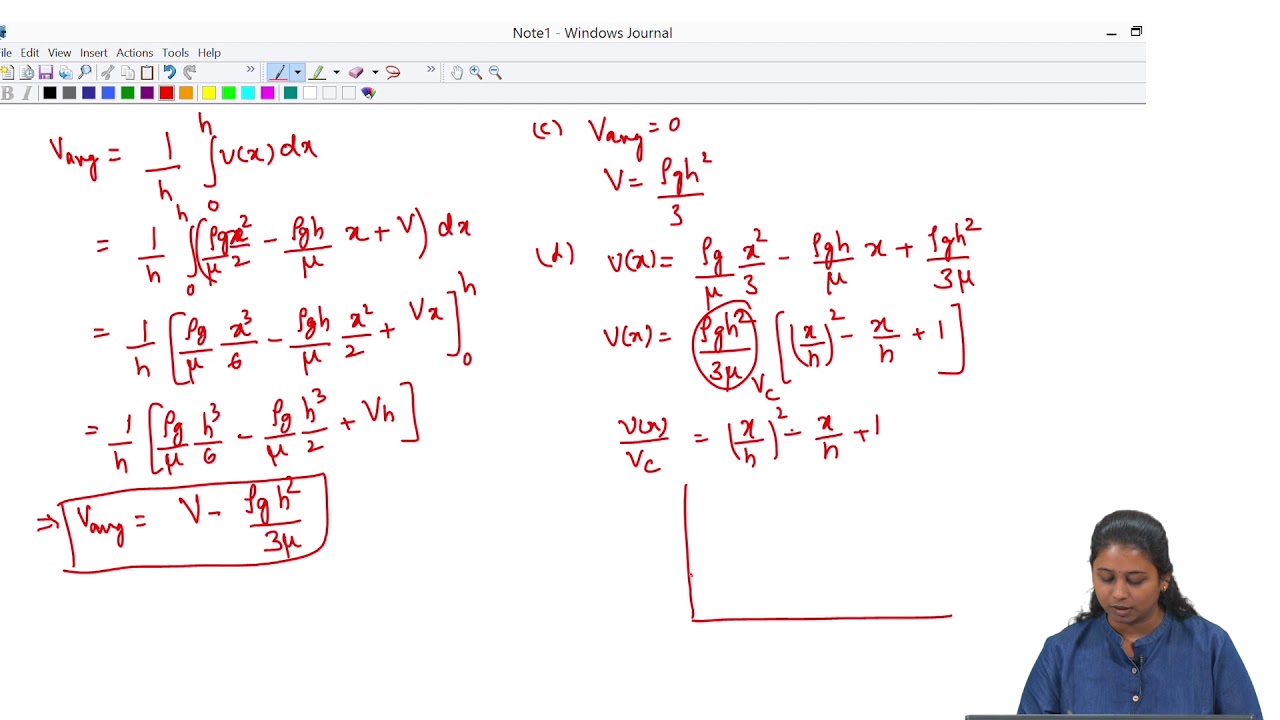 Note1 - Windows Journal
File Edit View Insert Actions Tools Help
B I
Vavg = 1/h ∫₀ʰ v(x) dx
= 1/h ∫₀ʰ (ρg/μ x²/2 - ρgh/μ x + V) dx
= 1/h [ρg/μ x³/6 - ρgh/μ x²/2 + Vx]₀ʰ
= 1/h [ρg/μ h³/6 - ρg/μ h³/2 + Vh]
⇒ Vavg = V - ρgh²/3μ
(c) Vavg = 0
V = ρgh²/3
(d) v(x) = ρg/μ x²/3 - ρgh/μ x + ρgh²/3μ
v(x) = ρgh²/3μ [(x/h)² - x/h + 1]
Vc
v(x)/Vc = (x/h)² - x/h + 1